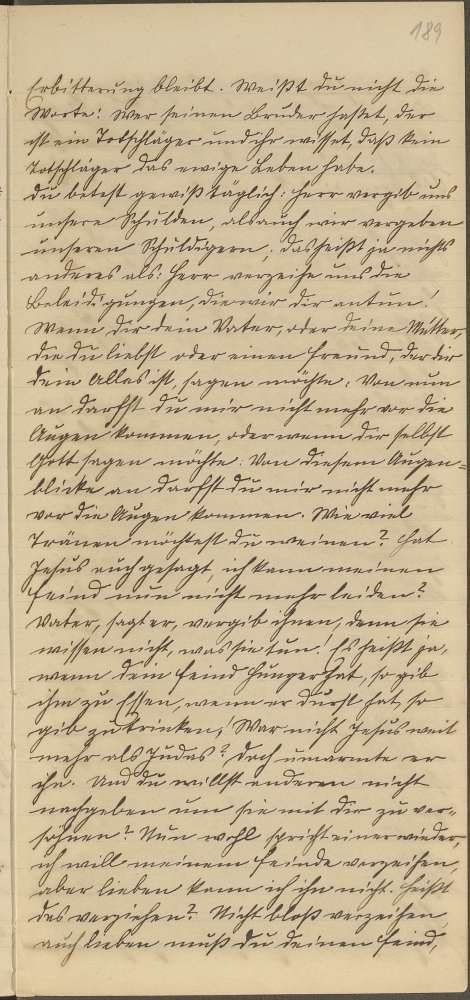 189
Erbitterung bleibt. Weißt du nicht die
Worte: Wer seinen Bruder hasset, der
ist ein Totschläger und ihr wisset, daß kein
Totschläger das ewige Leben habe.
Du betest gewiß täglich: Herr vergib uns
unsere Schulden, als auch wir vergeben
unseren Schuldigern; das heißt ja nichts
anderes als: Herr verzeihe uns die
Beleidigungen, die wir dir antun!
Wenn dir dein Vater, oder deine Mutter,
die du liebst oder einen Freund, der dir
dein Alles ist, sagen möchte: Von nun
an darfst du mir nicht mehr vor die
Augen kommen, oder wenn dir selbst
Gott sagen möchte: Von diesem Augen=
blicke an darfst du mir nicht mehr
vor die Augen kommen. Wie viel
Tränen möchtest du weinen? Hat
Jesus auch gesagt, ich kann meinen
Feind nun nicht mehr leiden?
Vater, sagt er, vergib ihnen, denn sie
wissen nicht, was sie tun! Es heißt ja,
wenn dein Feind Hunger hat, so gib
ihm zu Essen, wenn er Durst hat, so
gib zu trinken! War nicht Jesus weit
mehr als Judas? Doch umarmte er
ihn. Und du willst anderen nicht
nachgeben um sie mit dir zu ver=
söhnen? Nun wohl spricht einer wieder,
ich will meinem Feinde verzeihen,
aber lieben kann ich ihn nicht. Heißt
das verziehen? Nicht bloß verzeihen,
auch lieben mußt du deinen Feind,